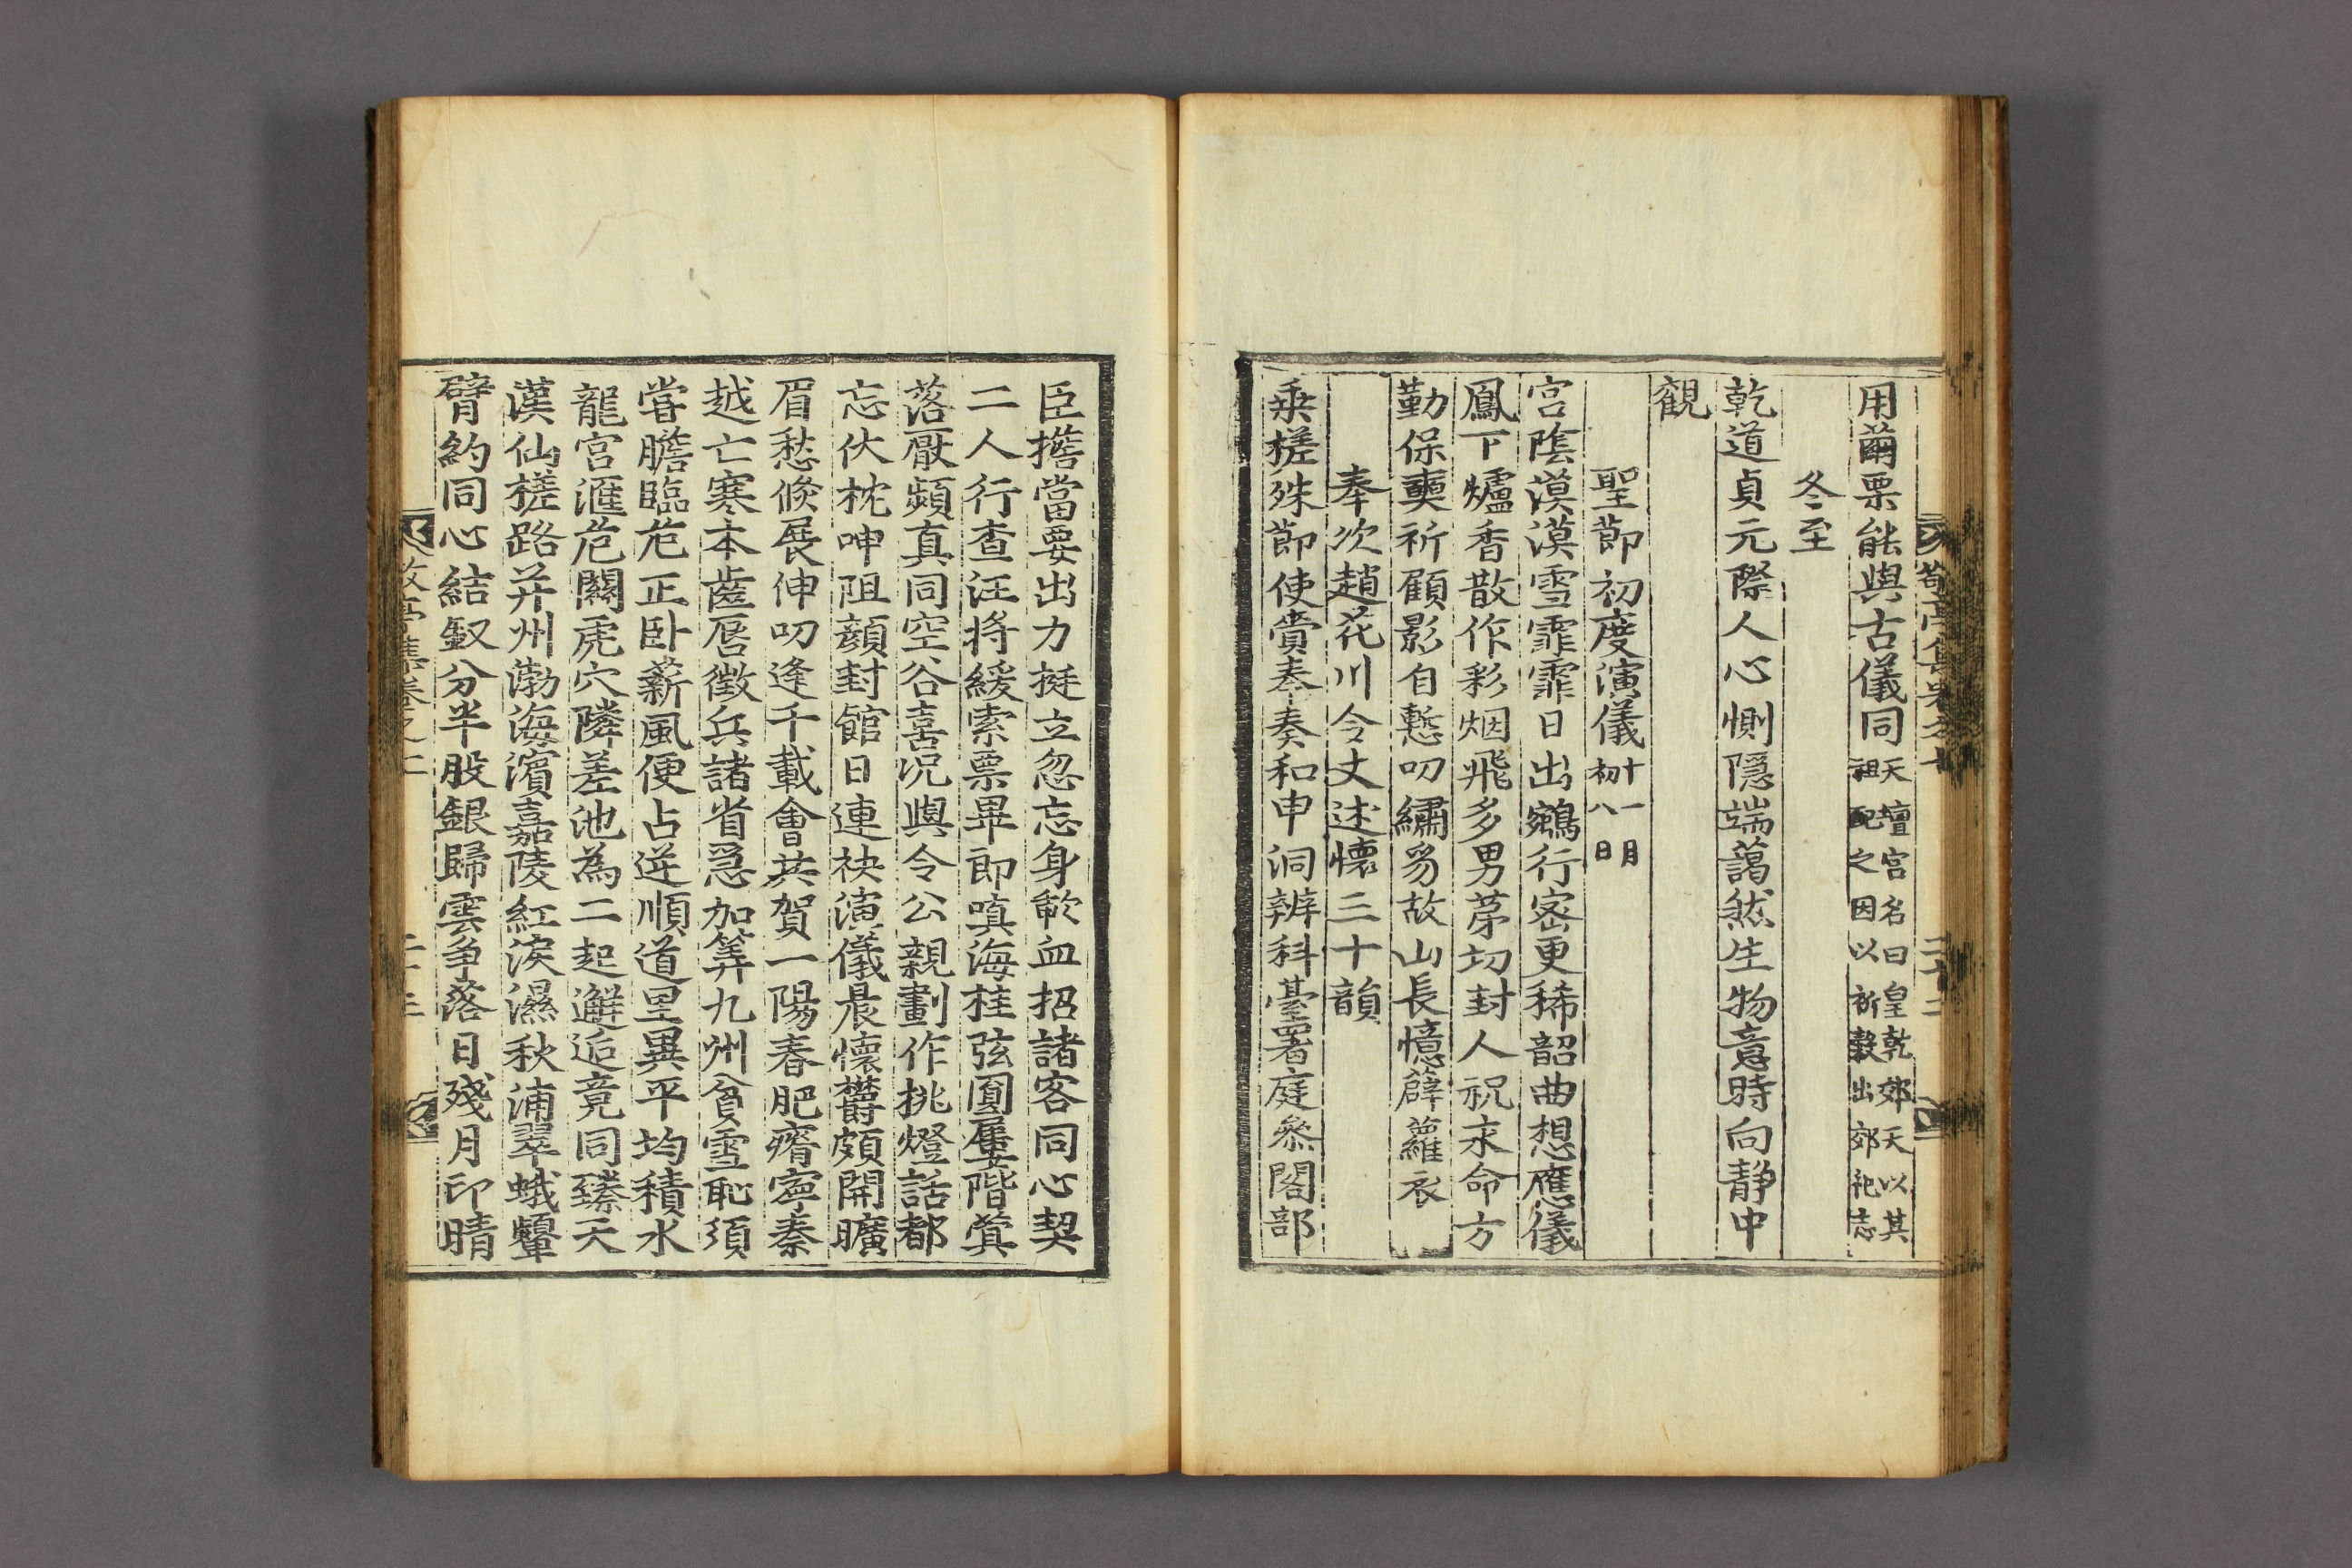 用繭栗能與古儀同天壇宮名曰皇乾郊天以其
祖配之因以祈穀出郊祀志
冬至
乾道貞元際人心惻隱端藹然生物意時向靜中
觀
聖節初度演儀十一月
初八日
宮陰漠漠雪霏霏日出鵷行密更稀韶曲想應儀
鳳下爐香散作彩烟飛多男茅切封人祝永命方
勤保奭祈顧影自慙叨繡豸故山長憶薜蘿衣
奉次趙花川令丈述懷三十韻
乘槎殊節使賫奉奏和申洞辨科臺署庭叅閣部
臣擔當要出力挺立忽忘身歃血招諸客同心契
二人行查汪將緩索票畢即嗔海桂弦圓屢階蓂
落厭頻真同空谷喜況與令公親劃作挑燈話都
忘伏枕呻阻顏封館日連袂演儀晨懷欝頗開曠
眉愁倐展伸叨逢千載會共賀一陽春肥瘠寧秦
越亡寒本齒唇徵兵諸省急加筭九州貧雪恥須
甞膽臨危正卧薪風便占逆順道里異平均積水
龍宮滙危關虎穴隣差池為二起邂逅竟同臻天
漢仙槎路幷州渤海濱嘉陵紅淚濕秋浦翠蛾顰
臂約同心結釵分半股銀歸雲爭落日殘月印晴